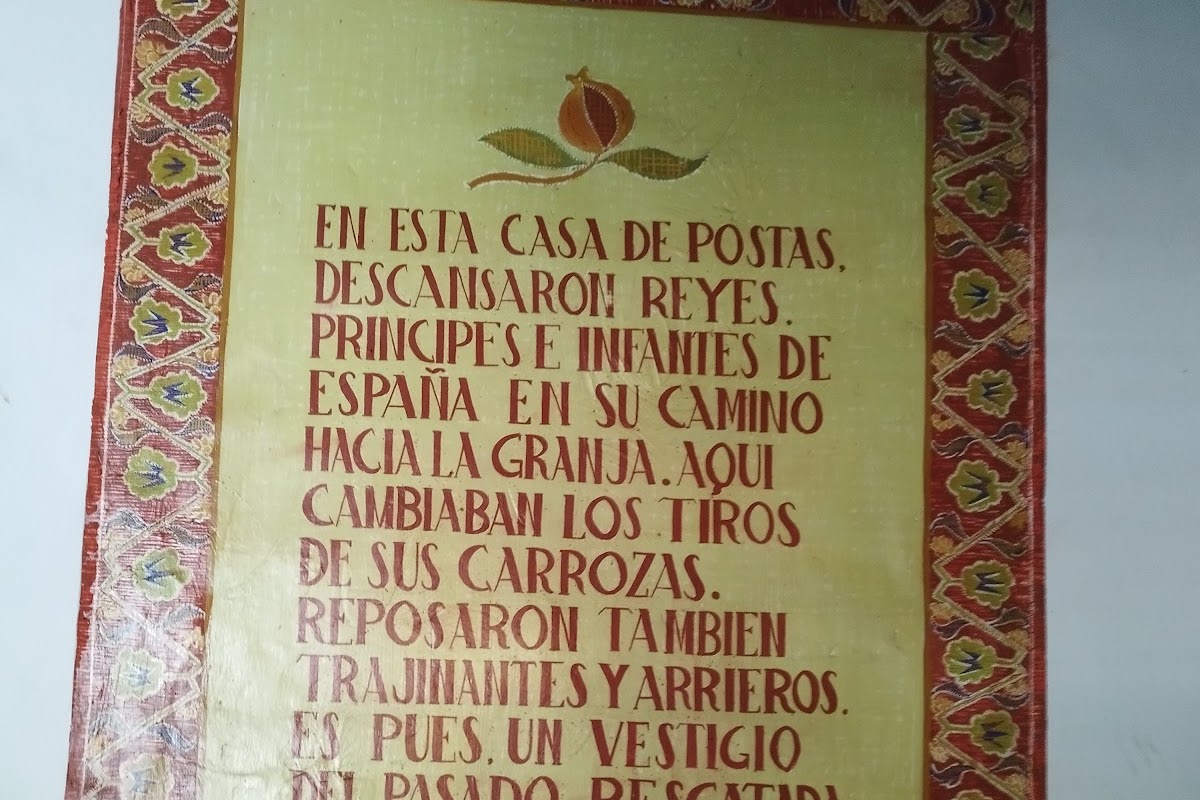 EN ESTA CASA DE POSTAS,
DESCANSARON REYES,
PRINCIPES E INFANTES DE
ESPAÑA EN SU CAMINO
HACIA LA GRANJA. AQUI
CAMBIABAN LOS TIROS
DE SUS CARROZAS.
REPOSARON TAMBIEN
TRAJINANTES Y ARRIEROS.
ES PUES, UN VESTIGIO
DEL PASADO, RESCATADA